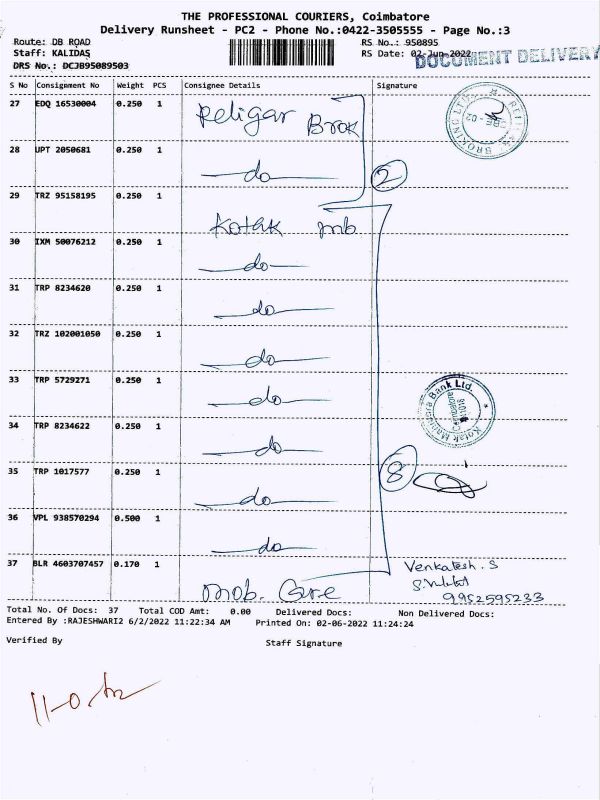 THE PROFESSIONAL COURIERS, Coimbatore
Delivery Runsheet - PC2 - Phone No.:0422-3505555 - Page No.:3
Route: DB ROAD
Staff: KALIDAS
DRS No.: DCJB95089503
RS No.: 950895
RS Date: 02-Jun-2022
DOCUMENT DELIVERY
S No Consignment No Weight PCS Consignee Details Signature
27 EDQ 16530004 0.250 1 Religar Brok
28 UPT 2050681 0.250 1 do
2
29 TRZ 95158195 0.250 1 Kotak mb
30 IXM 50076212 0.250 1 do
31 TRP 8234620 0.250 1 do
32 TRZ 102001050 0.250 1 do
33 TRP 5729271 0.250 1 do
Kotak Mahindra Bank Ltd.
34 TRP 8234622 0.250 1 do
35 TRP 1017577 0.250 1 do
8
36 VPL 938570294 0.500 1 do
37 BLR 4603707457 0.170 1 mob. Care
Venkatesh. S
9952595233
Total No. Of Docs: 37 Total COD Amt: 0.00 Delivered Docs: Non Delivered Docs:
Entered By :RAJESHWARI2 6/2/2022 11:22:34 AM Printed On: 02-06-2022 11:24:24
Verified By Staff Signature